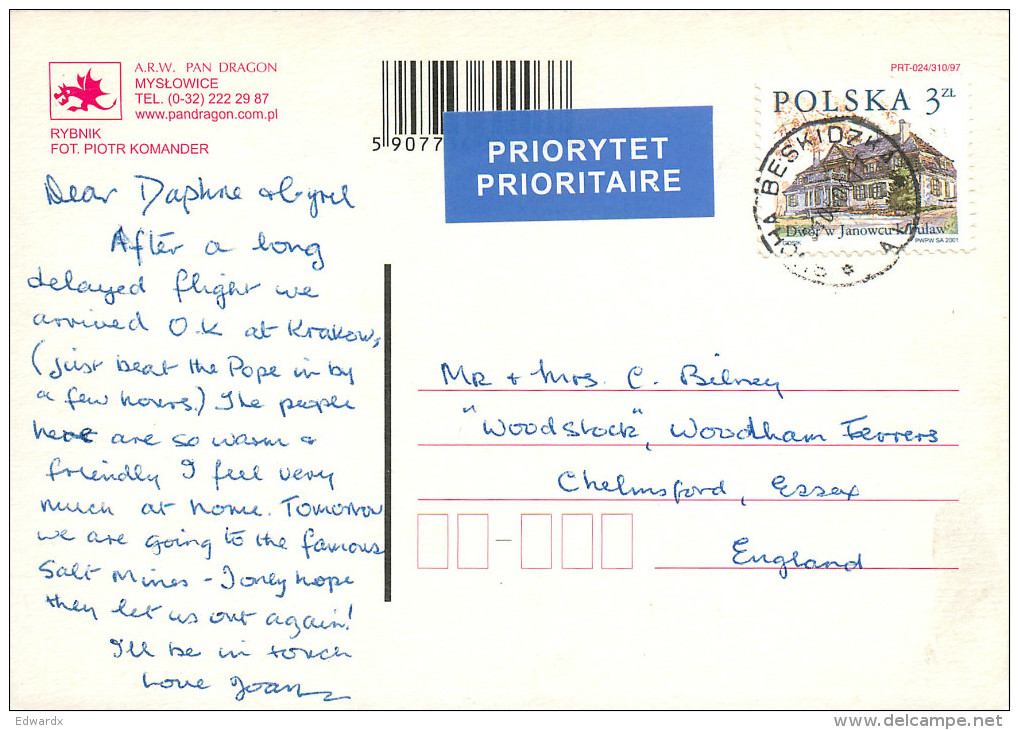 A.R.W. PAN DRAGON
MYSŁOWICE
TEL. (0-32) 222 29 87
www.pandragon.com.pl
RYBNIK
FOT. PIOTR KOMANDER
5 9077
PRIORYTET
PRIORITAIRE
PRT-024/310/97
POLSKA 3 ZŁ
BESKIDZKA
Dwór w Janowcu k. Puław
PWPW SA 2001
Dear Daphne & Cyril
After a long
delayed flight we
arrived O.K at Krakow,
(just beat the Pope in by
a few hours.) The people
here are so warm &
friendly I feel very
much at home. Tomorrow
we are going to the famous
Salt Mines - I only hope
they let us out again!
I'll be in touch
Love Joan
Mr + Mrs. C. Bilney
"Woodstock", Woodham Ferrers
Chelmsford, Essex
England
Edwardx
delcampe.net